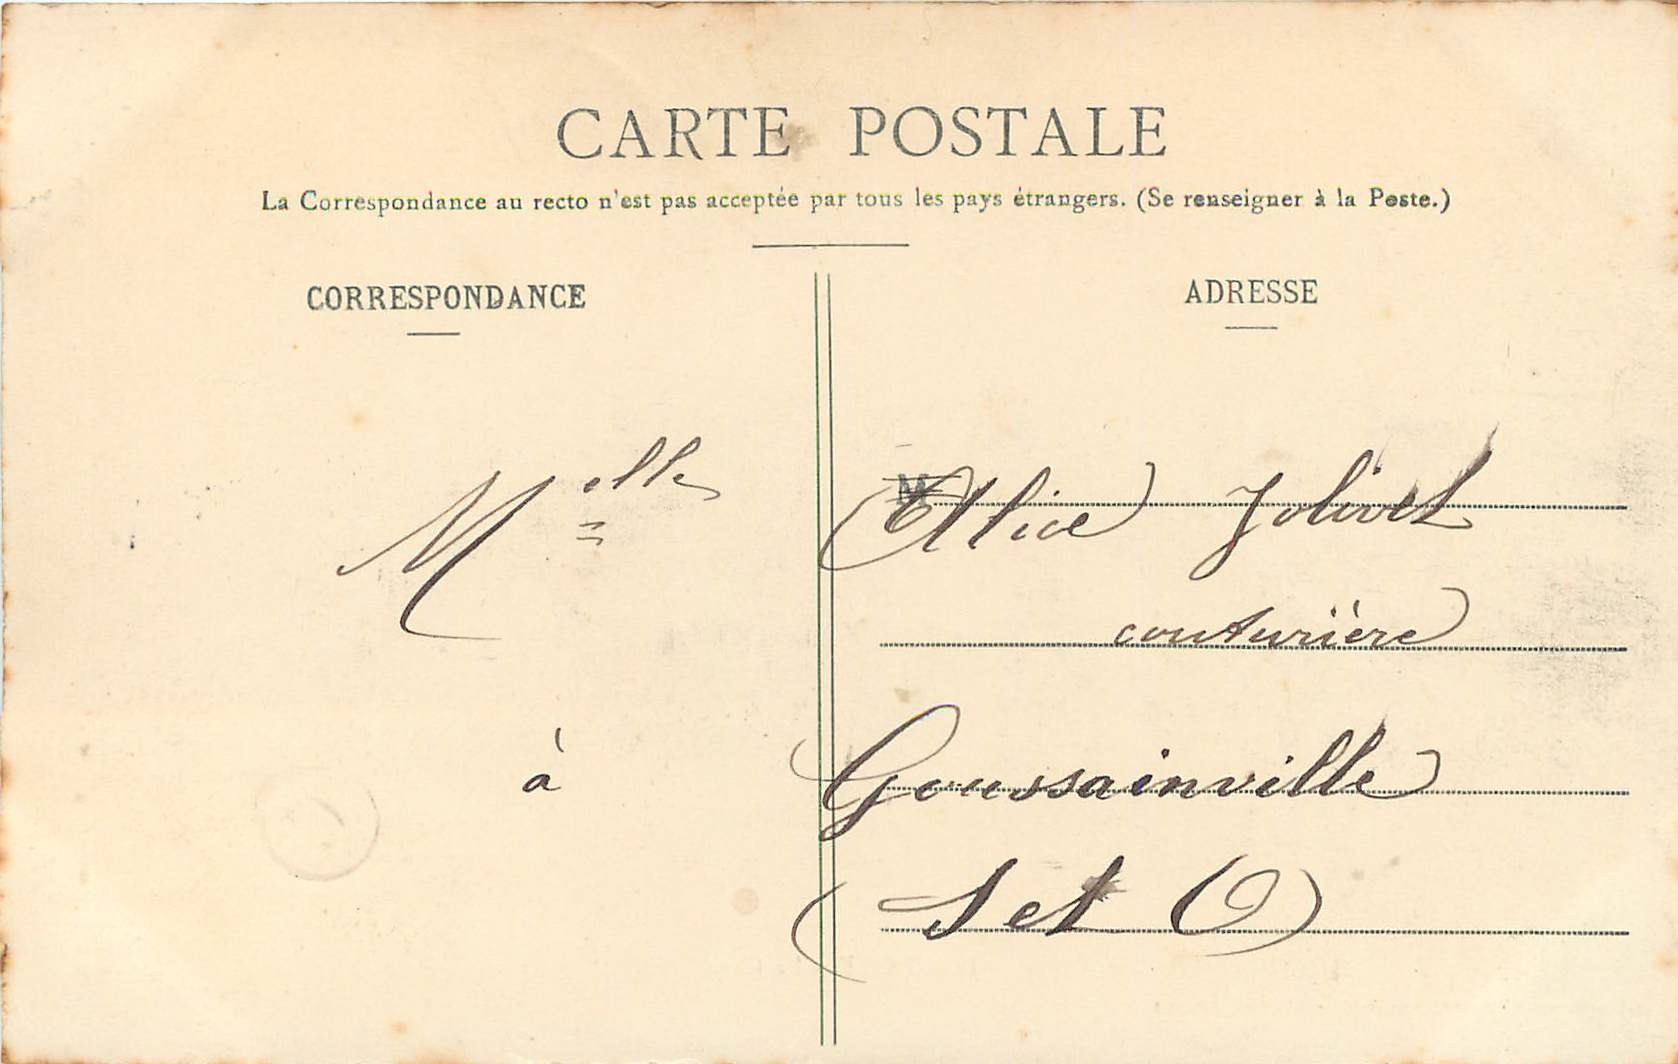 CARTE POSTALE
La Correspondance au recto n'est pas acceptée par tous les pays étrangers. (Se renseigner à la Poste.)
CORRESPONDANCE
ADRESSE
M
Melle Alice Jolivet
couturière
à Goussainville
(S et O)